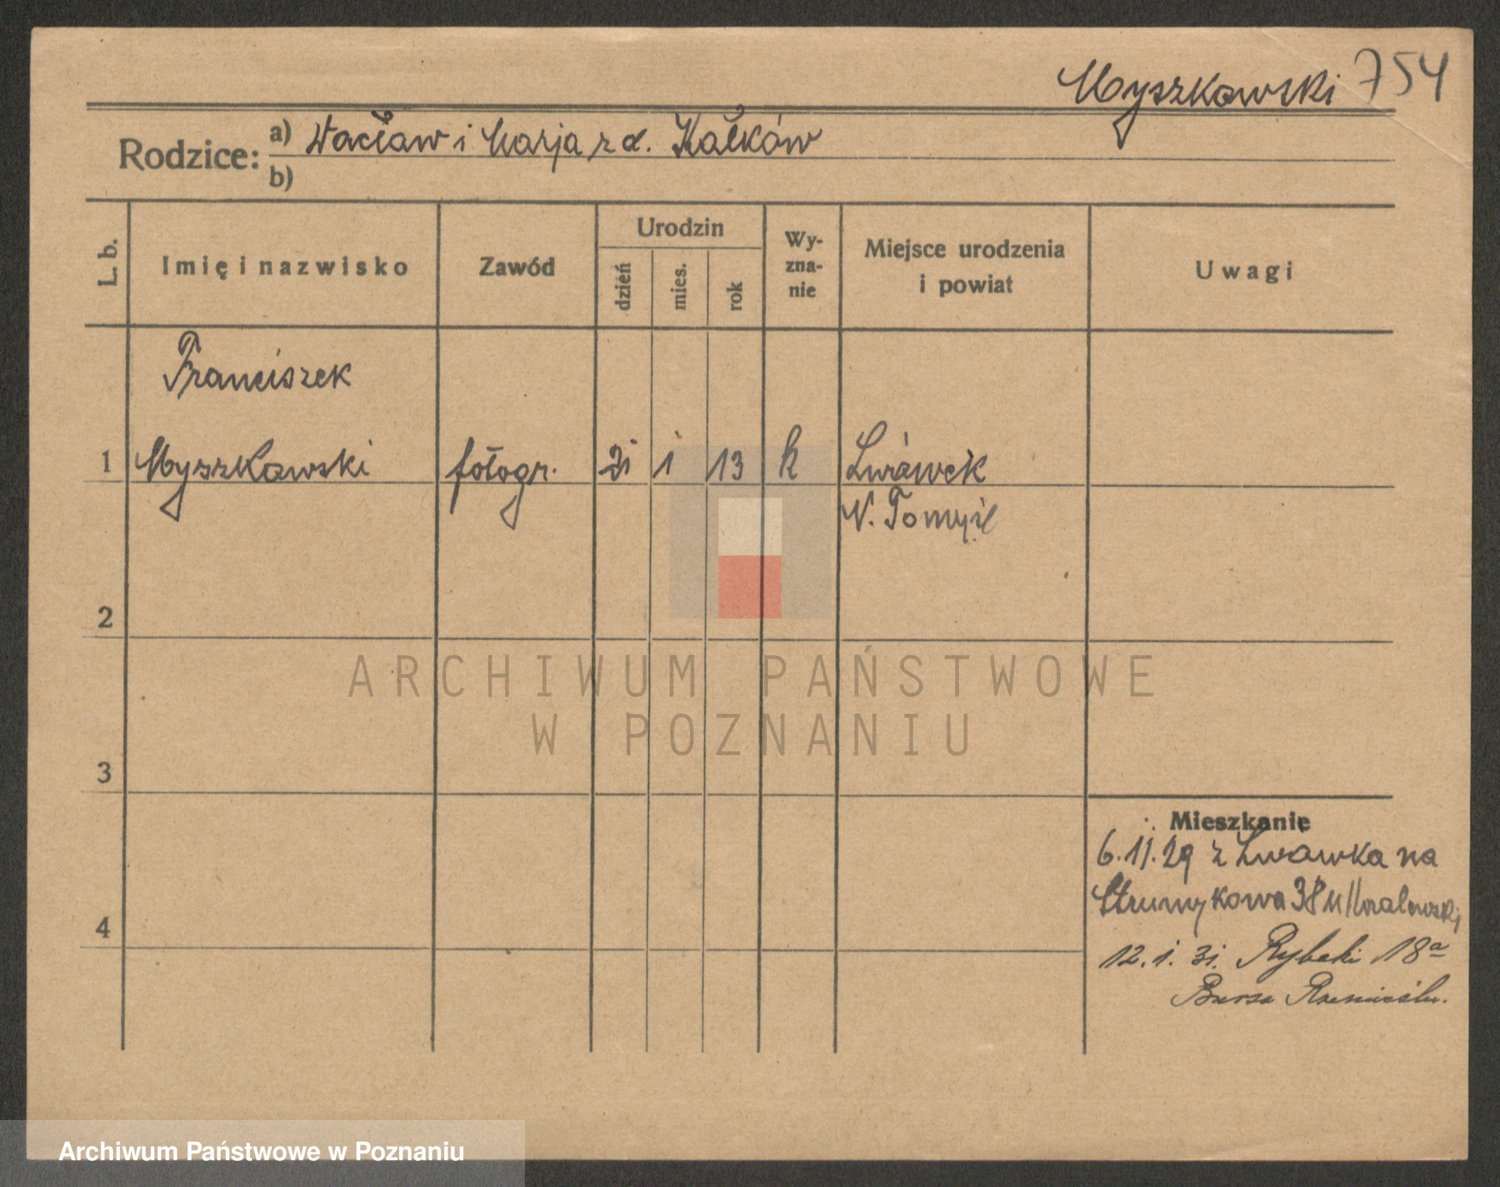 Myszkowski 754
Rodzice: a) Wacław i Marja z d. Kałków
b)
L. b. Imię i nazwisko Zawód Urodzin dzień mies. rok Wy-zna-nie Miejsce urodzenia i powiat Uwagi
Franciszek
1 Myszkowski fotogr. 31 1 13 k Lwówek
N. Tomyśl
2
ARCHIWUM PAŃSTWOWE
W POZNANIU
3
Mieszkanie
6.11.29 z Lwówka na
Strumykowa 38 u
4
12.1.31. Rybaki 18a
Bursa Rzemieśln.
Archiwum Państwowe w Poznaniu